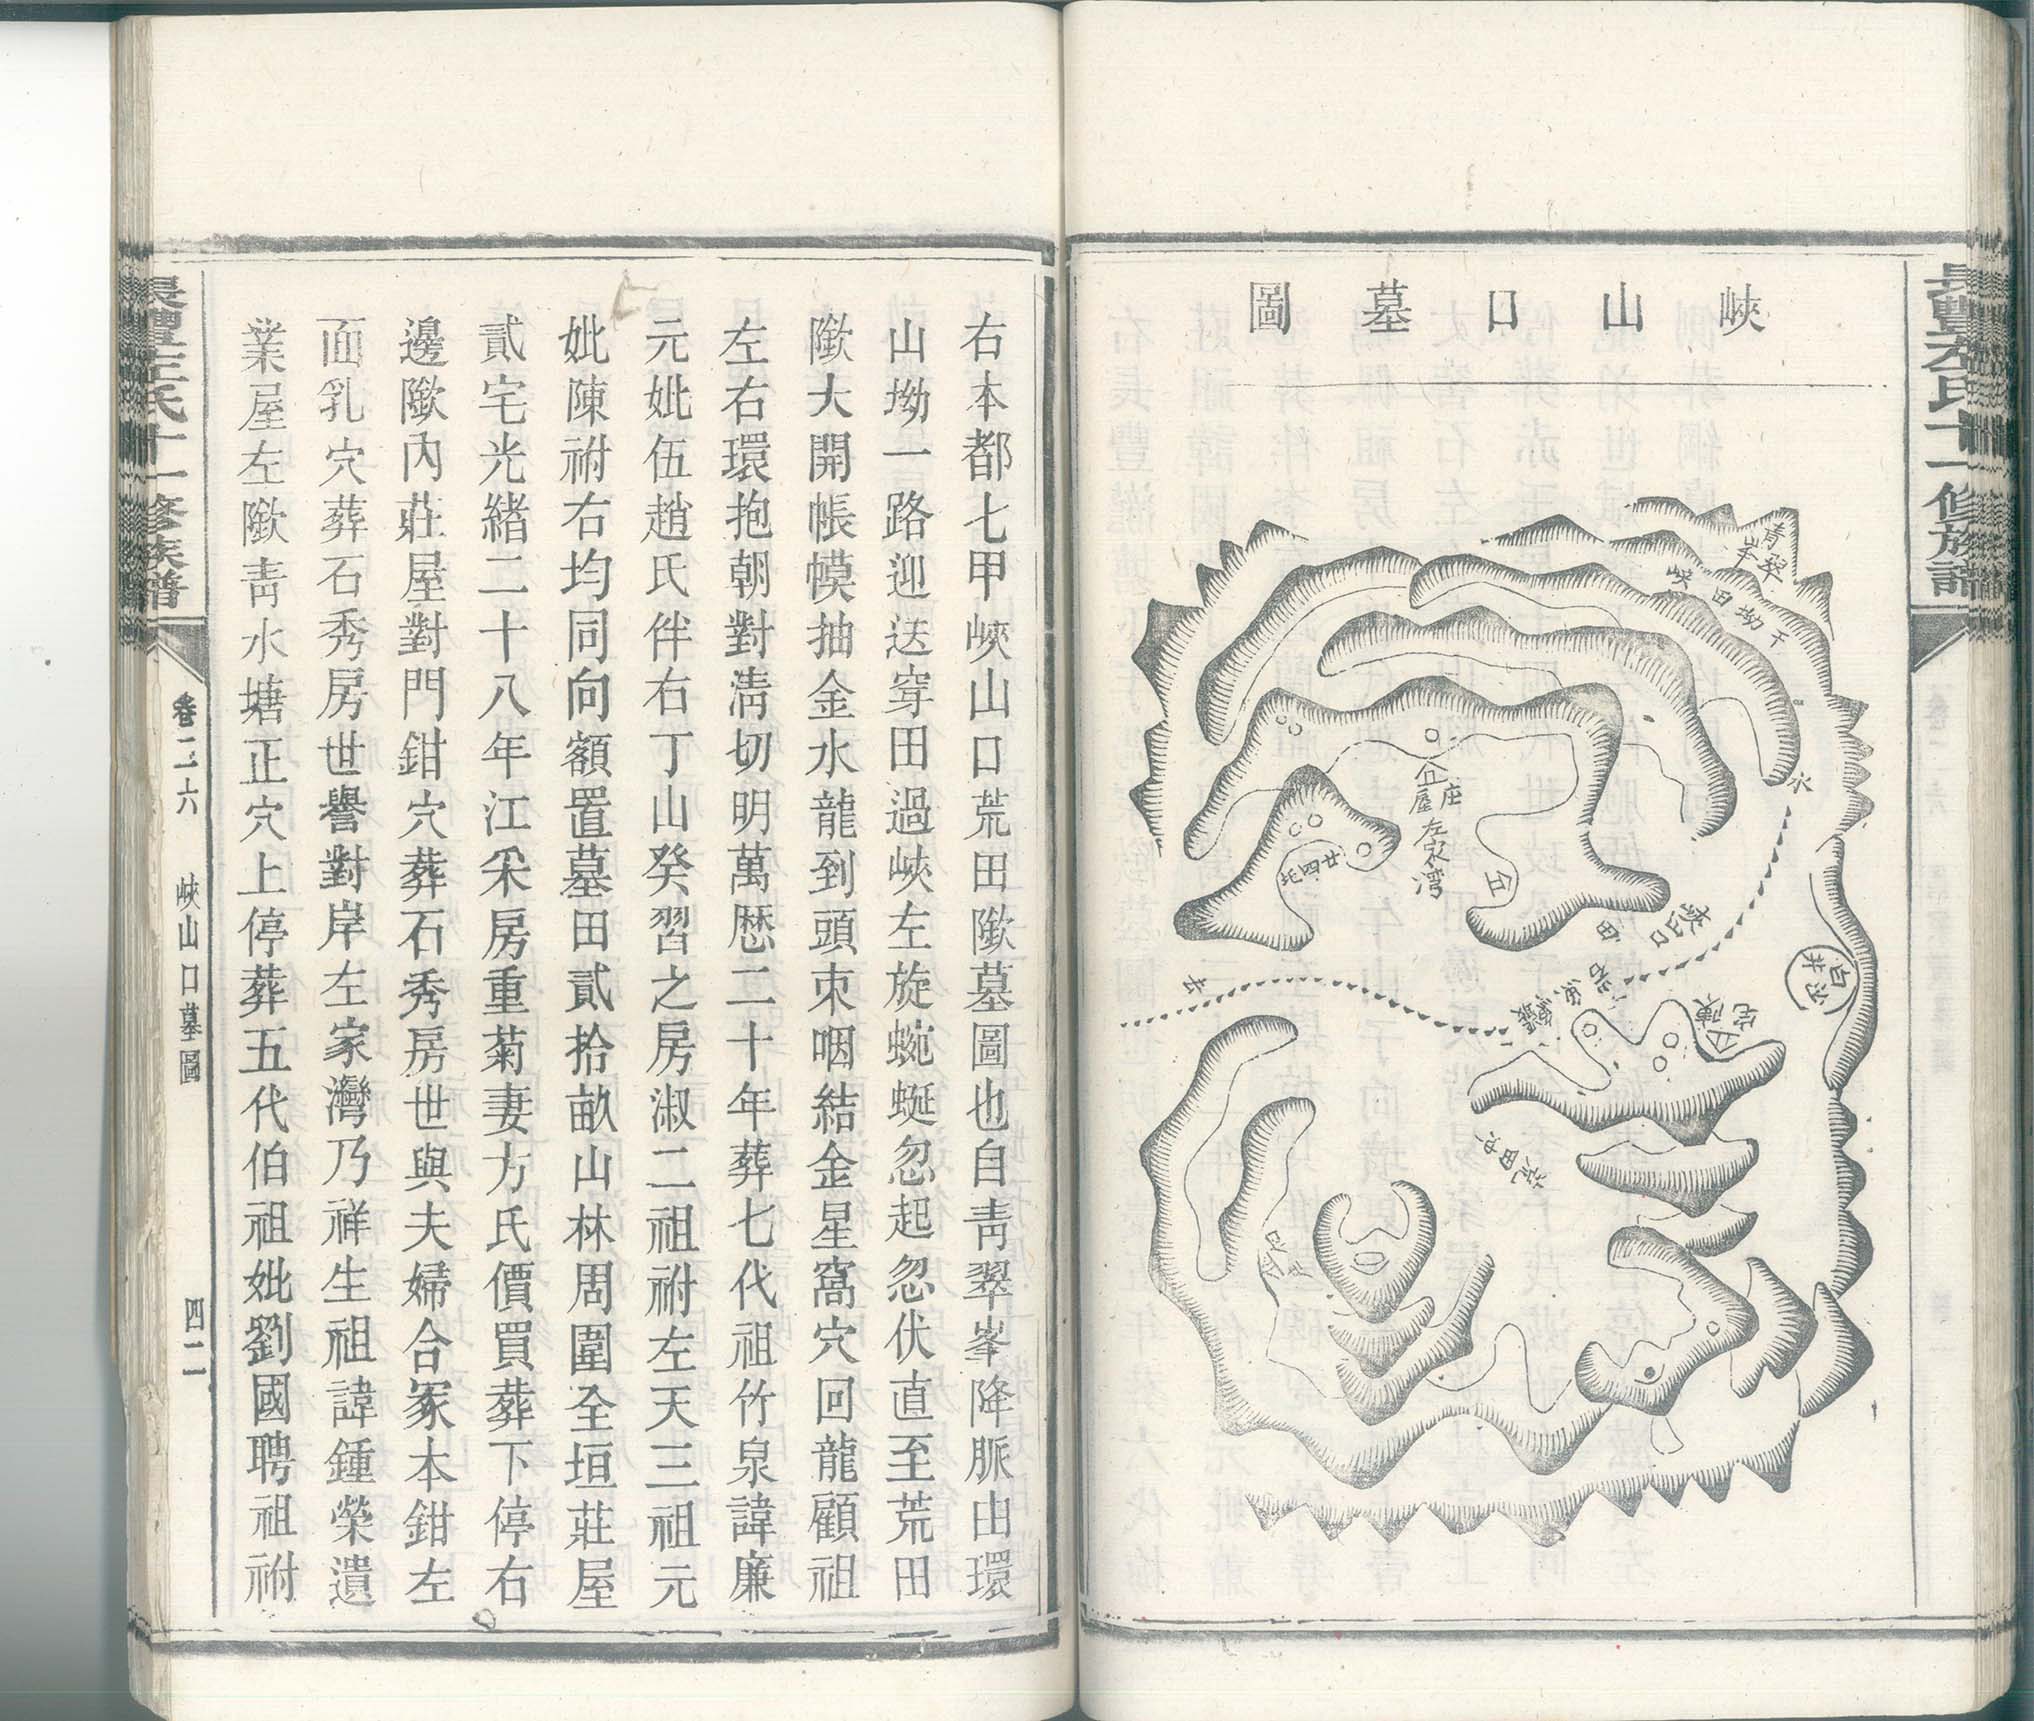 長豐左氏十一修族譜
峽山口墓圖
青翠峯
峽田坳下
水
庄屋
左家灣
廿四北
峽口
田
去
白沙井
陳宅
荒田
右本都七甲峽山口荒田歘墓圖也自青翠峯降脈由環
山坳一路迎送穿田過峽左旋蜿蜒忽起忽伏直至荒田
歘大開帳幙抽金水龍到頭束咽結金星窩穴回龍顧祖
左右環抱朝對清切明萬歷二十年葬七代祖竹泉諱廉
元妣伍趙氏伴右丁山癸習之房淑二祖祔左天三祖元
妣陳祔右均同向額置墓田貳拾畝山林周圍全垣莊屋
貳宅光緒二十八年江采房重菊妻方氏價買葬下停右
邊歘內莊屋對門鉗穴葬石秀房世與夫婦合冢本鉗左
面乳穴葬石秀房世譽對岸左家灣乃祥生祖諱鍾榮遺
業屋左歘青水塘正穴上停葬五代伯祖妣劉國聘祖祔
長豐左氏十一修族譜
卷二六
峽山口墓圖
四二